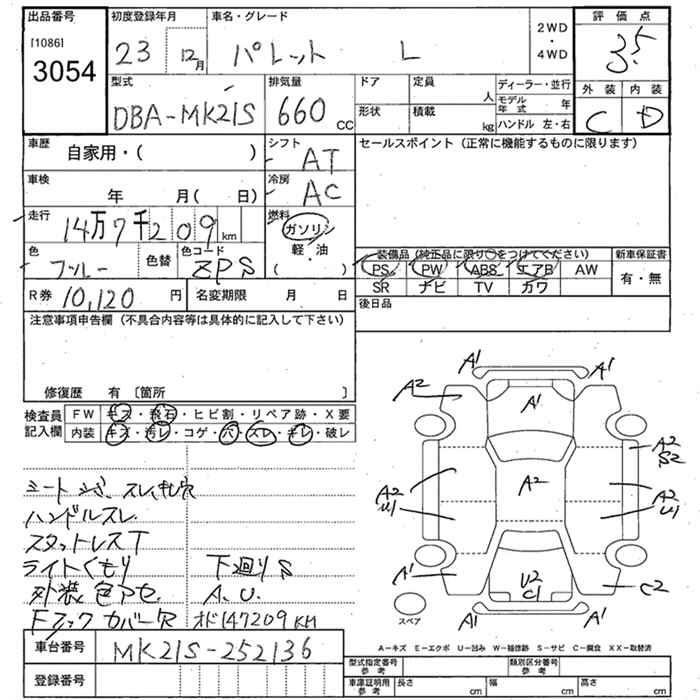 出品番号
[1086]
3054
初度登録年月
23 12月
車名・グレード
パレット L
2WD
・
4WD
評価点
3.5
外装 内装
C D
型式
DBA-MK21S
排気量
660 CC
ドア
形状
定員
人
積載
kg
ディーラー・並行
モデル年式 年
ハンドル 左・右
車歴
自家用・( )
シフト
AT
車検
年 月( 日)
冷房
AC
走行
14万7千209km
燃料
ガソリン
軽・油
( )
色
ブルー
色替
色コード
ZPS
R券 10,120 円
名変期限 月 日
セールスポイント (正常に機能するものに限ります)
装備品 (純正品に限り○をつけてください)
新車保証書
PS PW ABS エアB AW
SR ナビ TV カワ
有・無
後日品
注意事項申告欄 (不具合内容等は具体的に記入して下さい)
修復歴 有 〔箇所 〕
検査員記入欄
FW キズ・飛石・ヒビ割・リペア跡・X要
内装 キズ・汚レ・コゲ・穴・スレ・キレ・破レ
シート シミ、スレ、キレ、穴
ハンドルスレ
スタットレスT
ライトくもり
外装色アセ、
Fフックカバー欠
下廻りS
A、U、
オド147209KM
A1 A1
A2 A1 A1
A2
S2
A2
U1
A2
A2
U1
A1
U2
C1
C2
A1 A1
スペア
A-キズ E-エクボ U-凹み W-補修跡 S-サビ C-腐食 XX-取替済
車台番号 MK21S-252136
登録番号
型式指定番号
参考
類別区分番号
参考
車庫証明用
参考
長さ cm
幅 cm
高さ cm